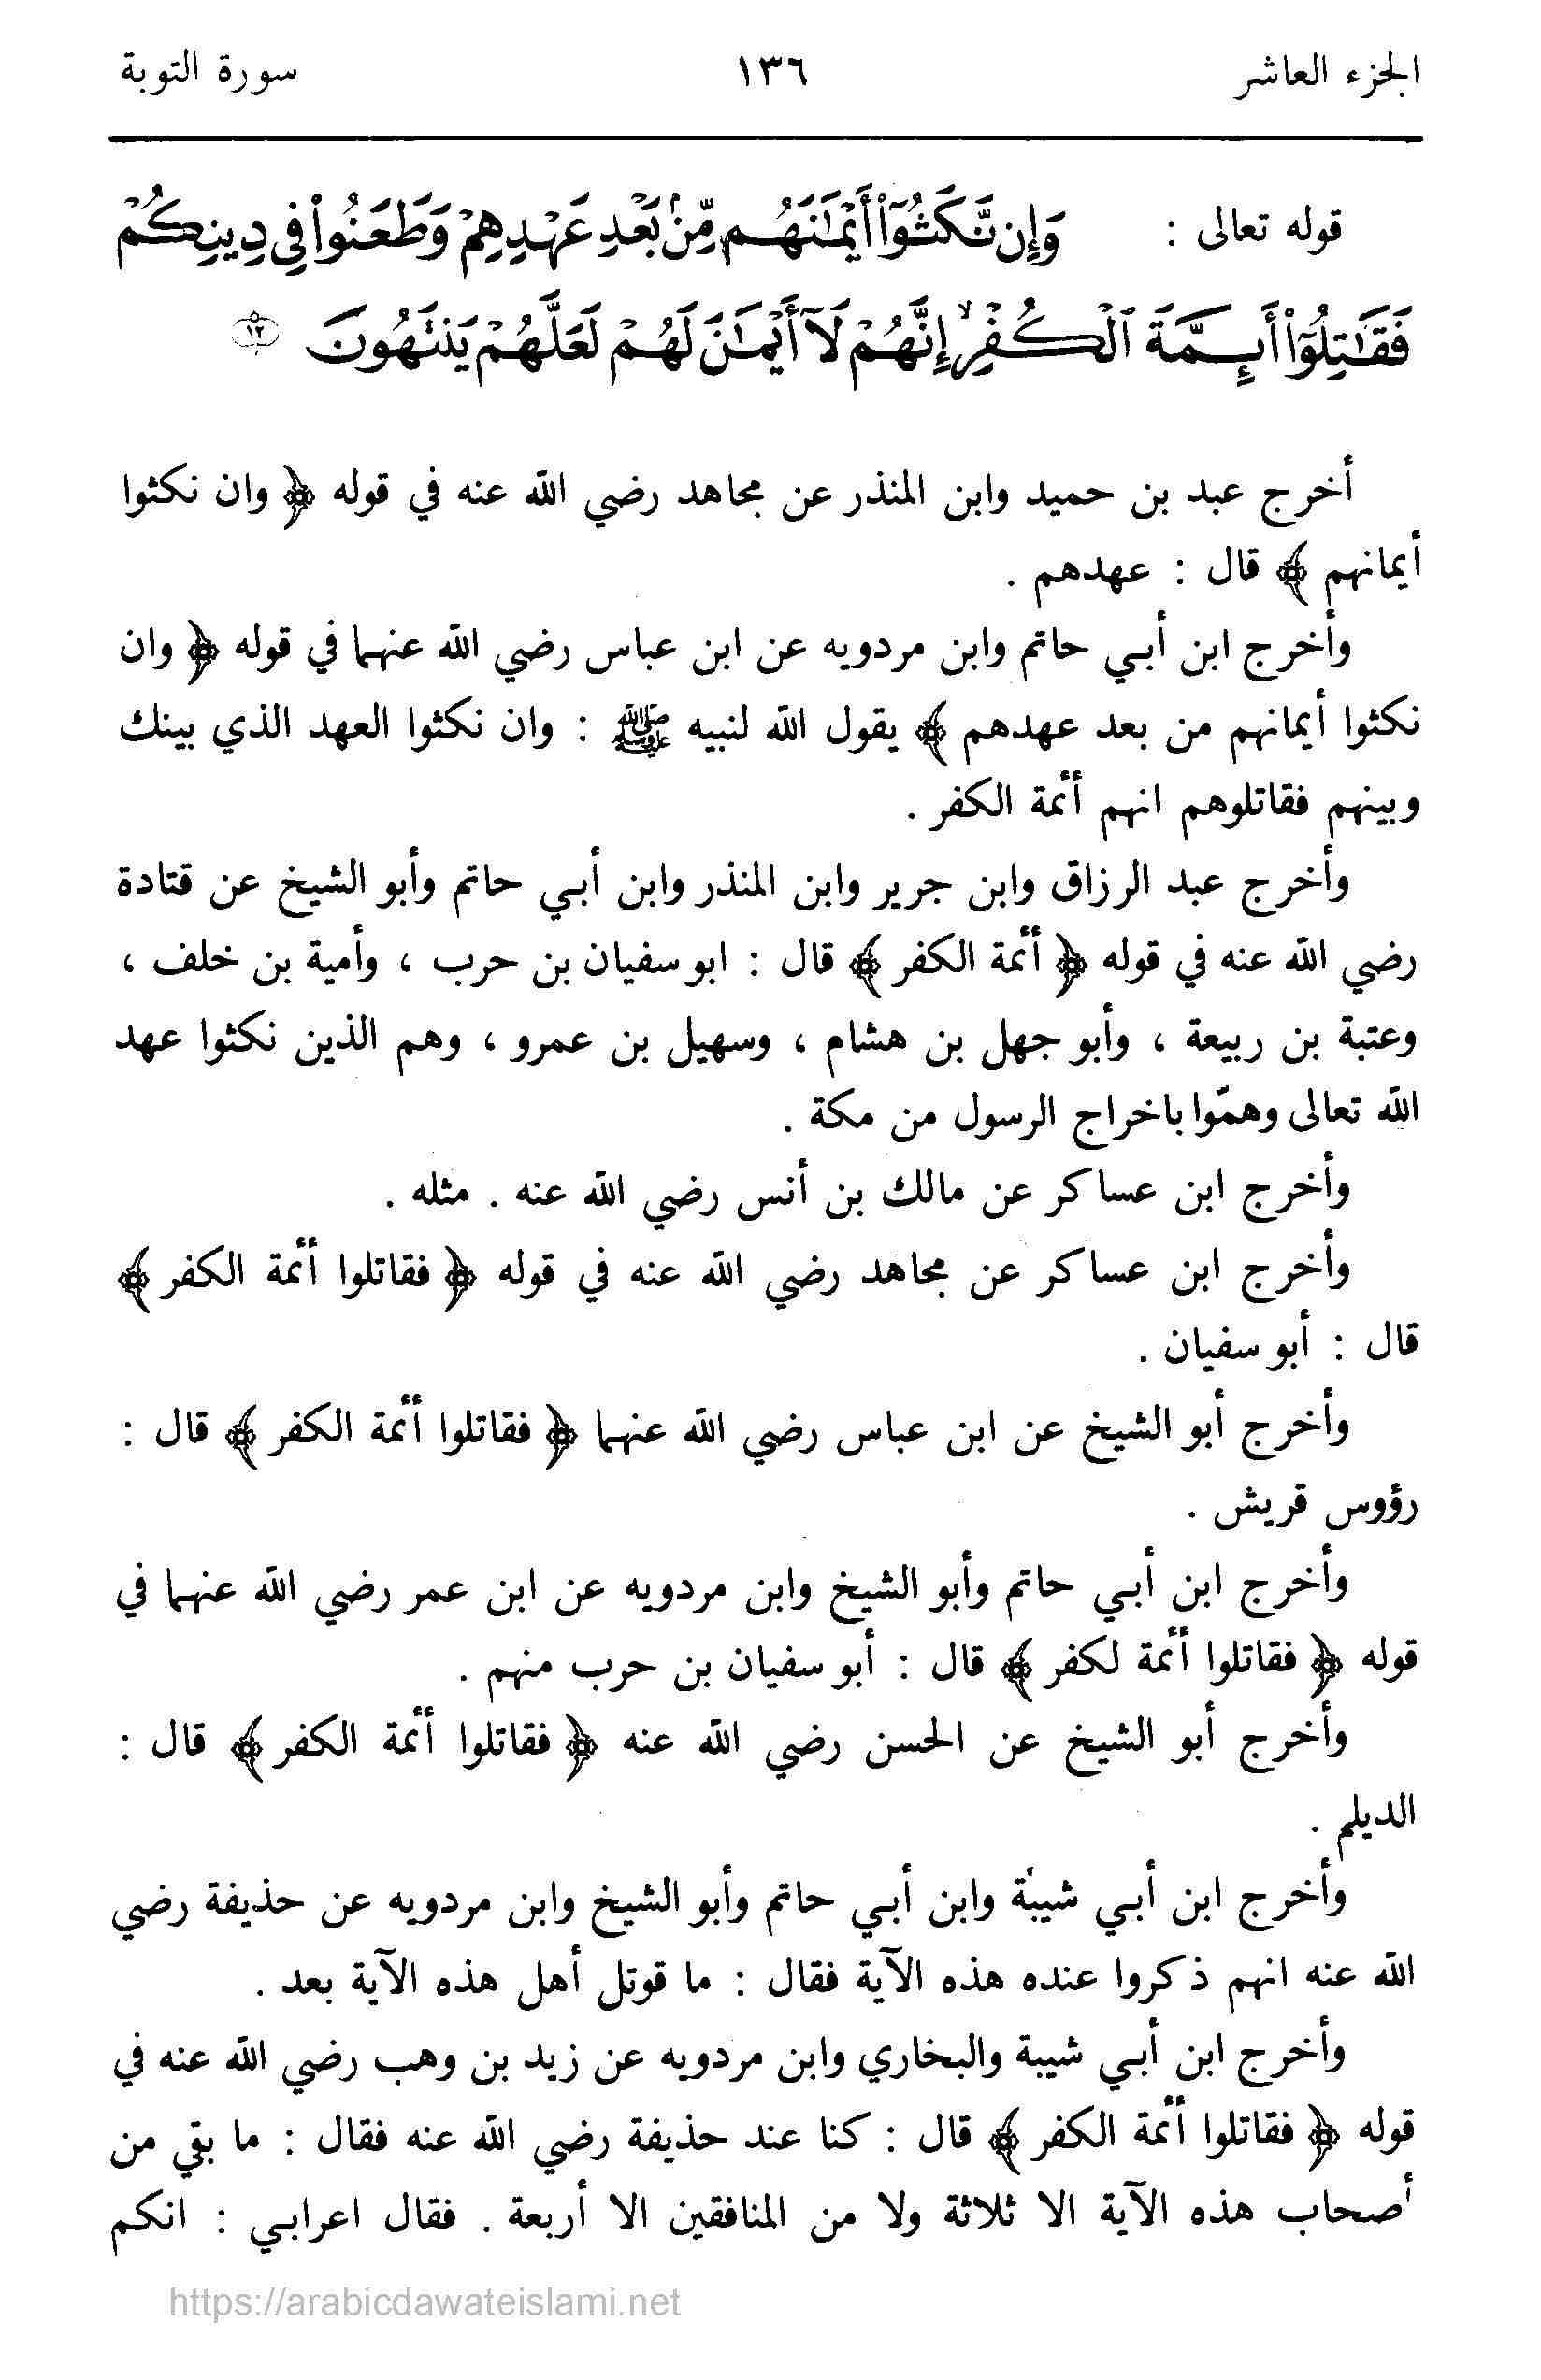 الجزء العاشر ١٣٦ سورة التوبة
قوله تعالى : وَإِن نَّكَثُوٓاْ أَيْمَٰنَهُم مِّنۢ بَعْدِ عَهْدِهِمْ وَطَعَنُواْ فِى دِينِكُمْ
فَقَٰتِلُوٓاْ أَئِمَّةَ ٱلْكُفْرِۙ إِنَّهُمْ لَآ أَيْمَٰنَ لَهُمْ لَعَلَّهُمْ يَنتَهُونَ ١٢
أخرج عبد بن حميد وابن المنذر عن مجاهد رضي الله عنه في قوله ﴿ وان نكثوا
أيمانهم ﴾ قال : عهدهم .
وأخرج ابن أبـي حاتم وابن مردويه عن ابن عباس رضي الله عنهما في قوله ﴿ وان
نكثوا أيمانهم من بعد عهدهم ﴾ يقول الله لنبيه ﷺ : وان نكثوا العهد الذي بينك
وبينهم فقاتلوهم انهم أئمة الكفر .
وأخرج عبد الرزاق وابن جرير وابن المنذر وابن أبـي حاتم وأبو الشيخ عن قتادة
رضي الله عنه في قوله ﴿ أئمة الكفر ﴾ قال : ابو سفيان بن حرب ، وأمية بن خلف ،
وعتبة بن ربيعة ، وأبو جهل بن هشام ، وسهيل بن عمرو ، وهم الذين نكثوا عهد
الله تعالى وهمّوا باخراج الرسول من مكة .
وأخرج ابن عساكر عن مالك بن أنس رضي الله عنه . مثله .
وأخرج ابن عساكر عن مجاهد رضي الله عنه في قوله ﴿ فقاتلوا أئمة الكفر ﴾
قال : أبو سفيان .
وأخرج أبو الشيخ عن ابن عباس رضي الله عنهما ﴿ فقاتلوا أئمة الكفر ﴾ قال :
رؤوس قريش .
وأخرج ابن أبـي حاتم وأبو الشيخ وابن مردويه عن ابن عمر رضي الله عنهما في
قوله ﴿ فقاتلوا أئمة لكفر ﴾ قال : أبو سفيان بن حرب منهم .
وأخرج أبو الشيخ عن الحسن رضي الله عنه ﴿ فقاتلوا أئمة الكفر ﴾ قال :
الديلم .
وأخرج ابن أبـي شيبة وابن أبـي حاتم وأبو الشيخ وابن مردويه عن حذيفة رضي
الله عنه انهم ذكروا عنده هذه الآية فقال : ما قوتل أهل هذه الآية بعد .
وأخرج ابن أبـي شيبة والبخاري وابن مردويه عن زيد بن وهب رضي الله عنه في
قوله ﴿ فقاتلوا أئمة الكفر ﴾ قال : كنا عند حذيفة رضي الله عنه فقال : ما بقي من
أصحاب هذه الآية الا ثلاثة ولا من المنافقين الا أربعة . فقال اعرابـي : انكم
https://arabicdawateislami.net